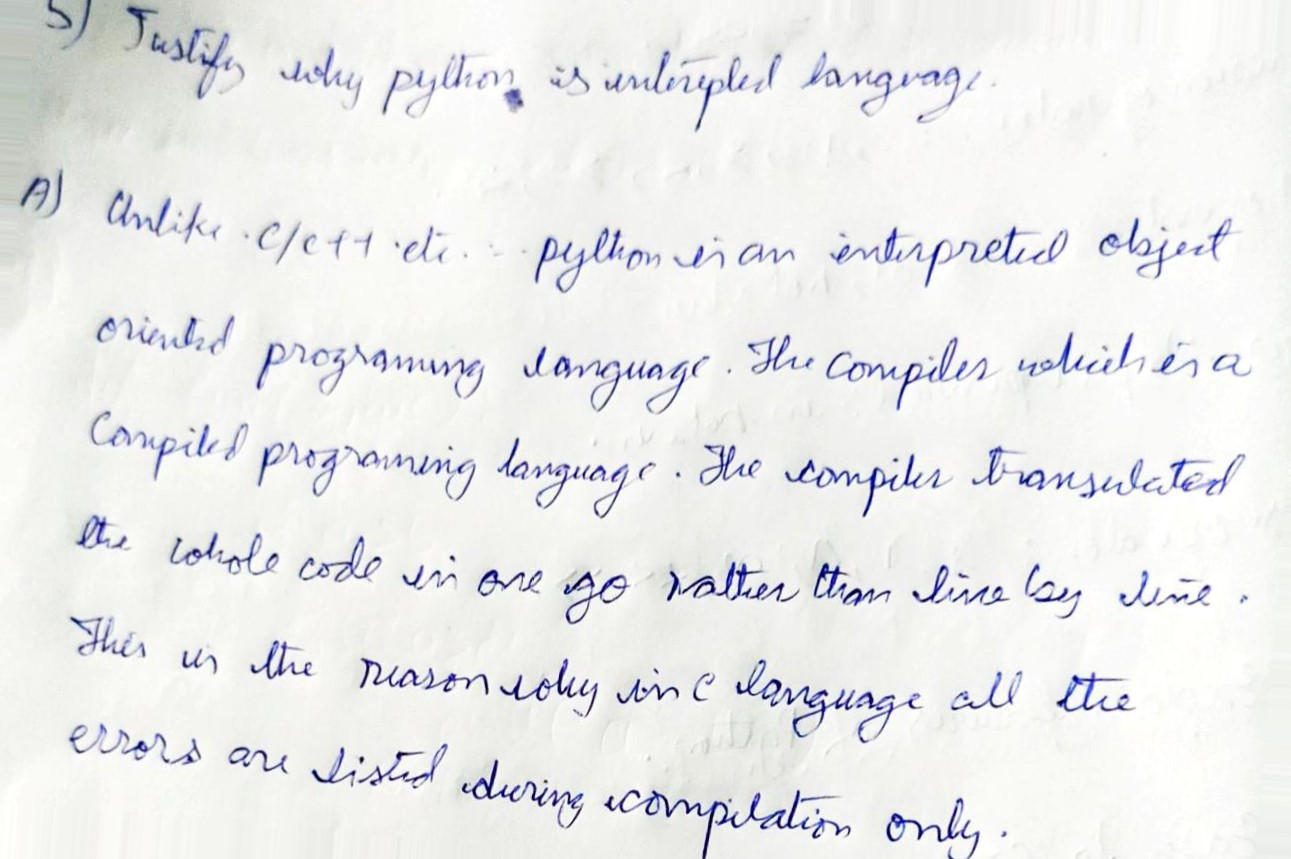 5) Justify why python is interepted language.
A) Unlike C/C++ etc. python is an interpreted object
oriented programing language. The compiler which is a
Compiled programing language. The compiler transulated
the whole code in one go rather than line by line.
This is the reason why in C language all the
errors are listed during compilation only.